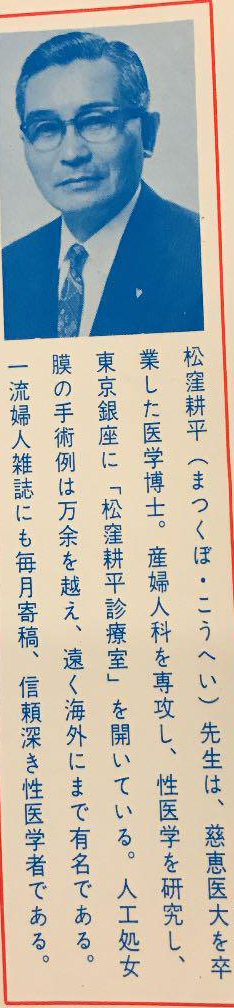 松窪耕平(まつくぼ・こうへい)先生は、慈恵医大を卒
業した医学博士。産婦人科を専攻し、性医学を研究し、
東京銀座に「松窪耕平診療室」を開いている。人工処女
膜の手術例は万余を越え、遠く海外にまで有名である。
一流婦人雑誌にも毎月寄稿、信頼深き性医学者である。